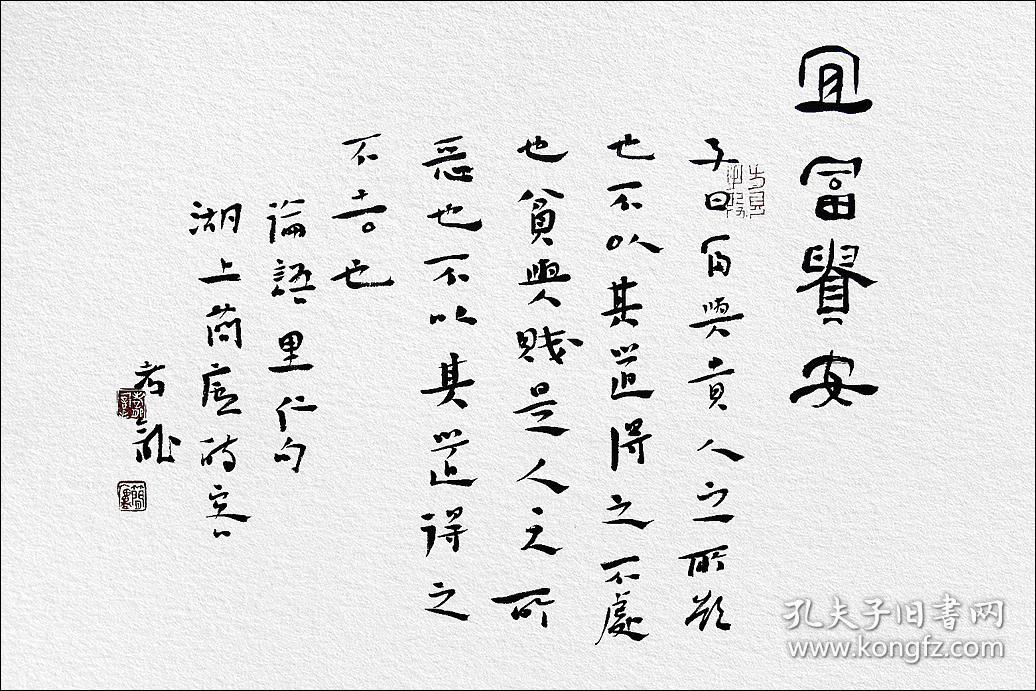 宜富贵安
子曰富與貴人之所欲
也不以其道得之不處
也貧與賤是人之所
惡也不以其道得之
不去也
論語里仁句
湖上簡廬時客
若龍
孔夫子旧書网
www.kongfz.com